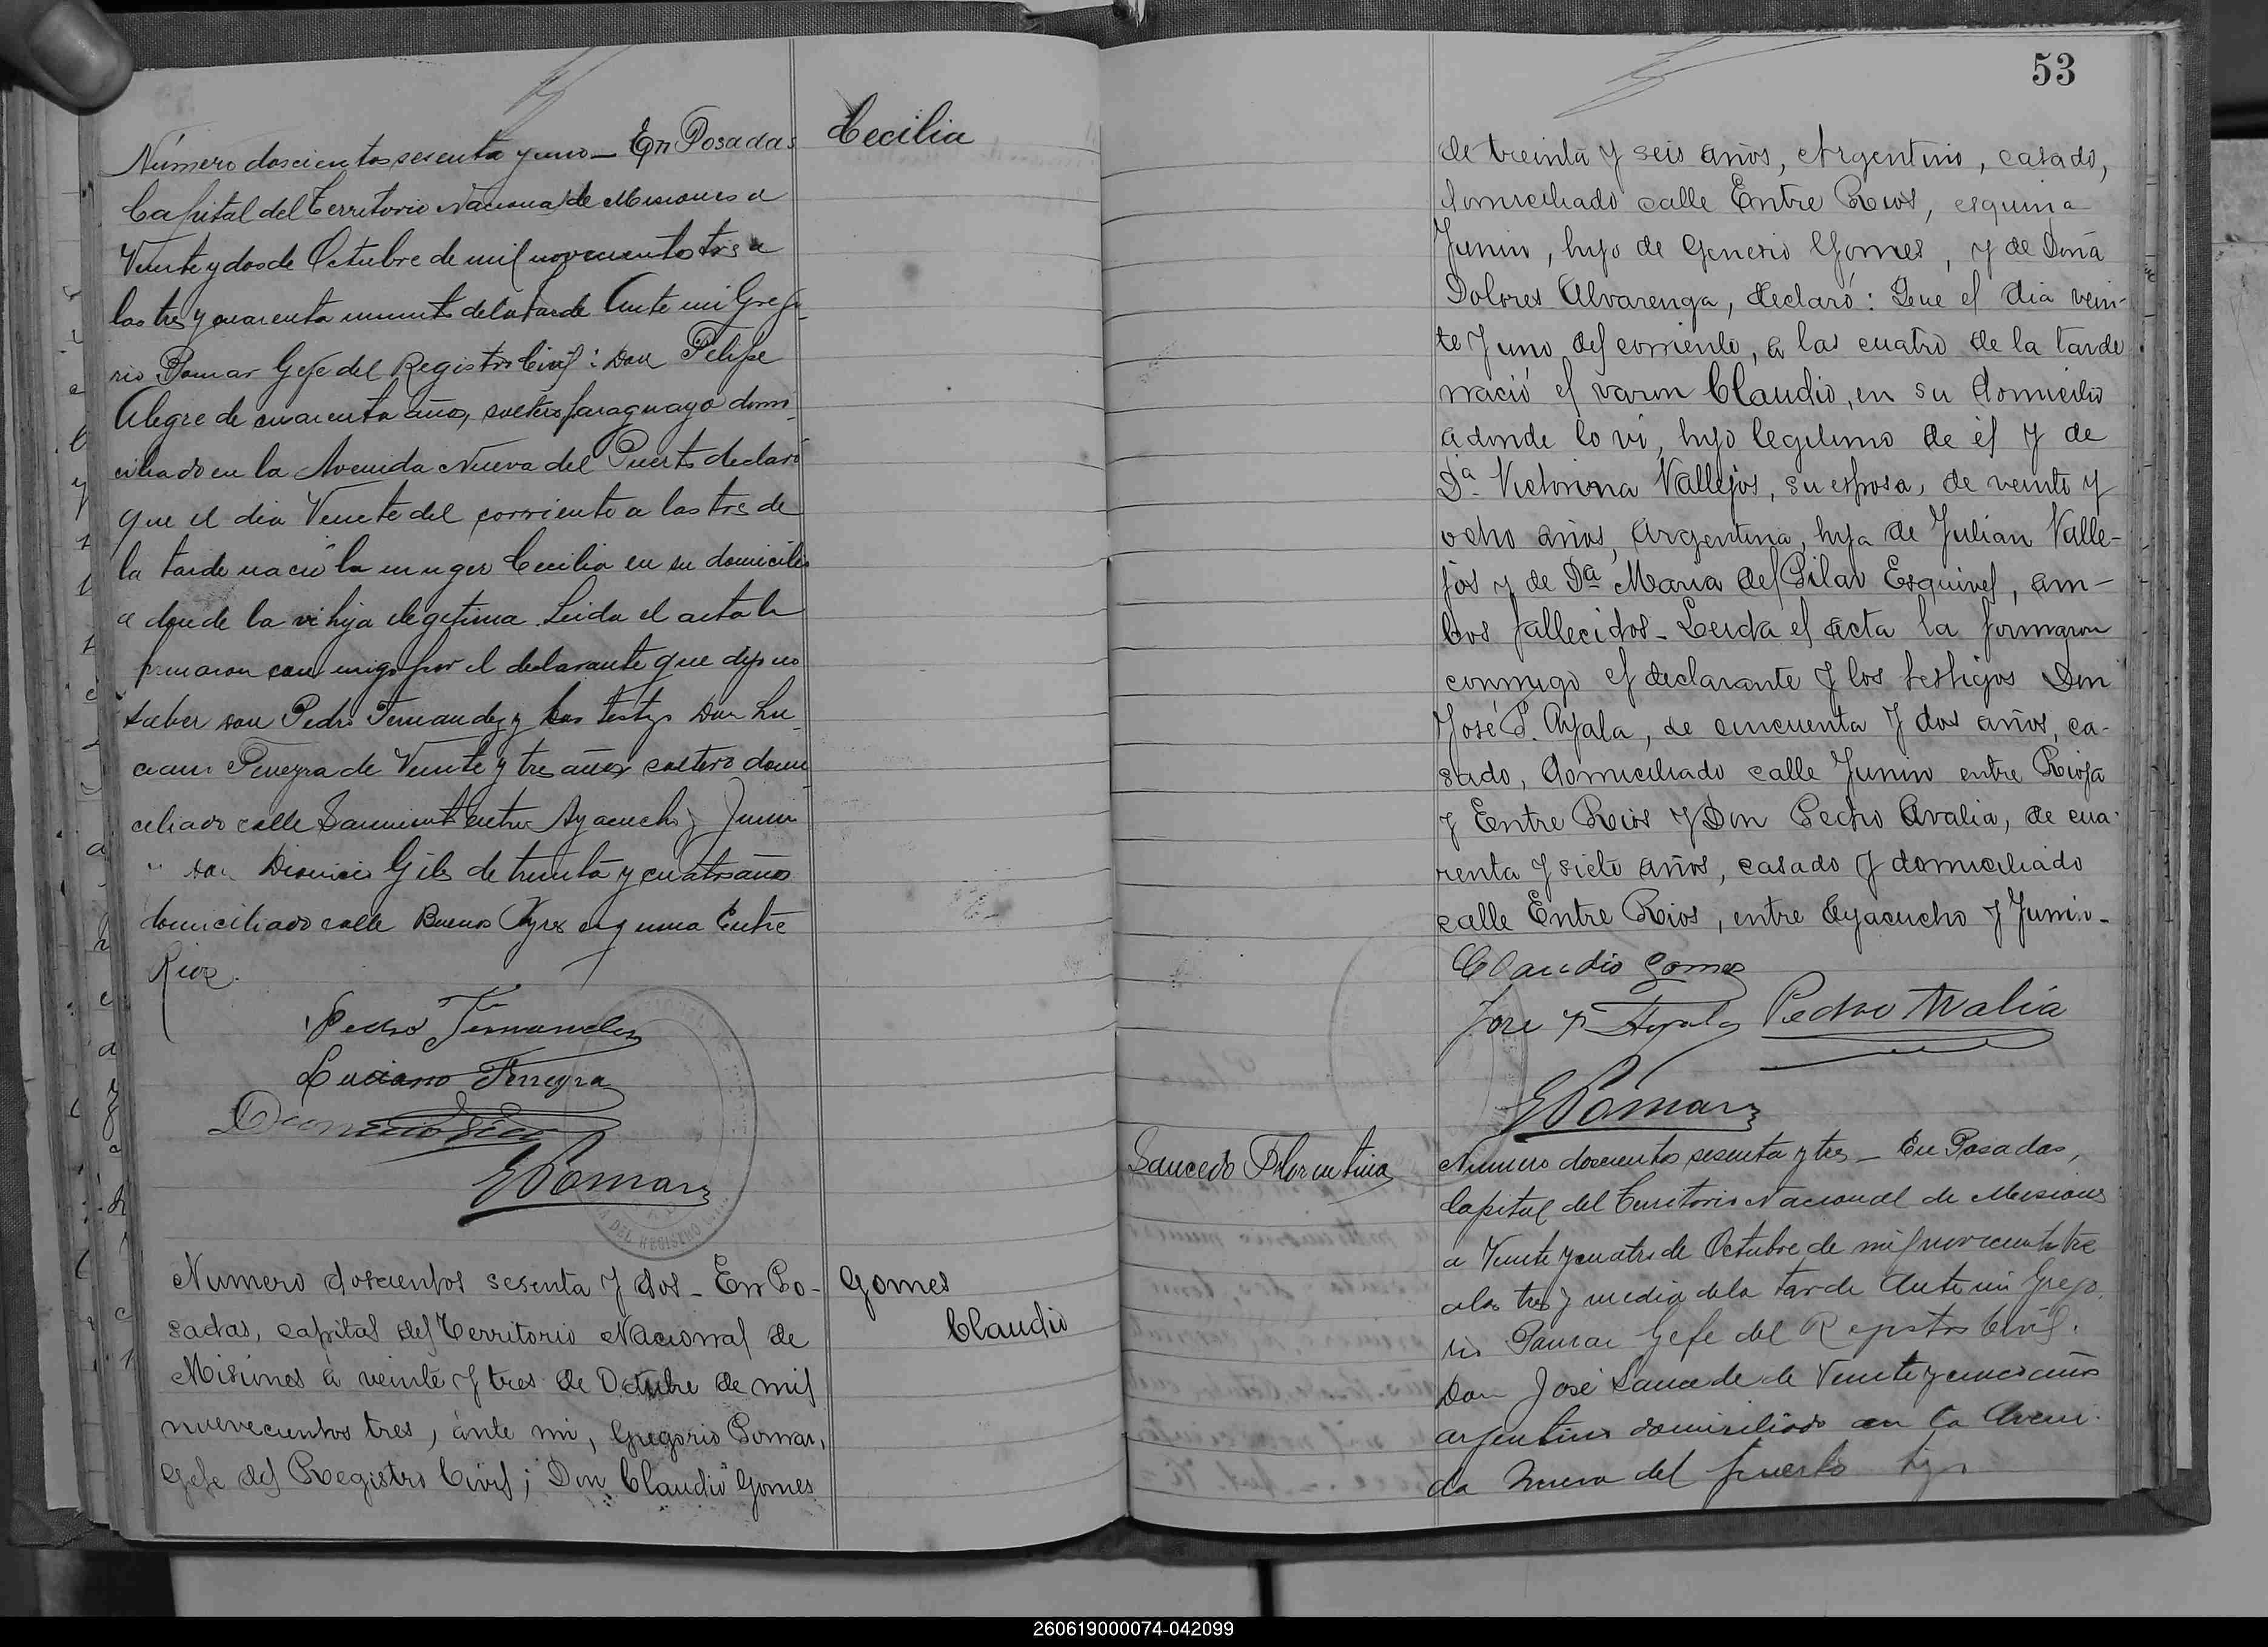 Cecilia
Número doscientos sesenta y uno _ En Posadas
Capital del Territorio Nacional de Misiones a
Veinte y dos de Octubre de mil novecientos tres a
las tres y cuarenta minuts de la tarde Ante mi Grego
rio Pomar Gefe del Registro Civil: Don Felipe
Alegre de cuarenta años, soltero paraguayo domi
ciliado en la Avenida Nueva del Puerto declaró
que el dia Veinte del corriente a las tres de
la tarde nació la muger Cecilia en su domicilio
a donde la vi hija ilegitima. Leida el acta la
firmaron conmigo por el declarante que dijo no
saber don Pedro Fernandez y los testgs Don Lu
ciano Ferreyra de Veinte y tres años soltero domi
ciliado calle Sarmiento entre Ayacucho y Junin
" don Dionicio Giles de treinta y cuatro años
domiciliado calle Buenos Ayres esquina Entre
Rios.
Pedro Fernandez
Luciano Ferreyra
Dionicio
GPomar
DEL REGISTRO
Gomes
Claudio
Numero doscientos sesenta y dos _ En Po-
sadas, capital del Territorio Nacional de
Misiones á veinte y tres de Octubre de mil
nuevecientos tres, ánte mi, Gregorio Pomar,
Gefe del Registro Civil; Don Claudio Gomes
53
de treinta y seis años, Argentino, casado,
domiciliado calle Entre Rios, esquina
Junin, hijo de Generio Gomes, y de Doña
Dolores Alvarenga, declaró: Que el dia vein-
te y uno del corriente, á las cuatro de la tarde
nació el varon Claudio, en su domicilio
adonde lo vi, hijo legitimo de él y de
Dª Victorina Vallejos, su esposa, de veinte y
ocho años, Argentina, hija de Julian Valle-
jos y de Dª Maria del Pilar Esquivel, am-
bos fallecidos _ Leida el acta la firmaron
conmigo el declarante y los testigos Don
José P. Ayala, de cincuenta y dos años, ca-
sado, domiciliado calle Junin entre Rioja
y Entre Rios y Don Pedro Avalia, de cua-
renta y siete años, casado y domiciliado
calle Entre Rios, entre Ayacucho y Junin.
Claudio Gomez
Jose P Ayala Pedro Avalia
GPomar
Saucedo Florentina
Numero doscientos sesenta y tres _ En Posadas,
Capital del Territorio Nacional de Misiones
a Veinte y cuatro de Octubre de mil novecientos tres
a las tres y media de la tarde Ante mi Grego
rio Pomar Gefe del Registro Civil.
Don José Saucedo de Veinte y cinco años
argentino domiciliado en la Aveni
da Nueva del puerto hijo
260619000074-042099